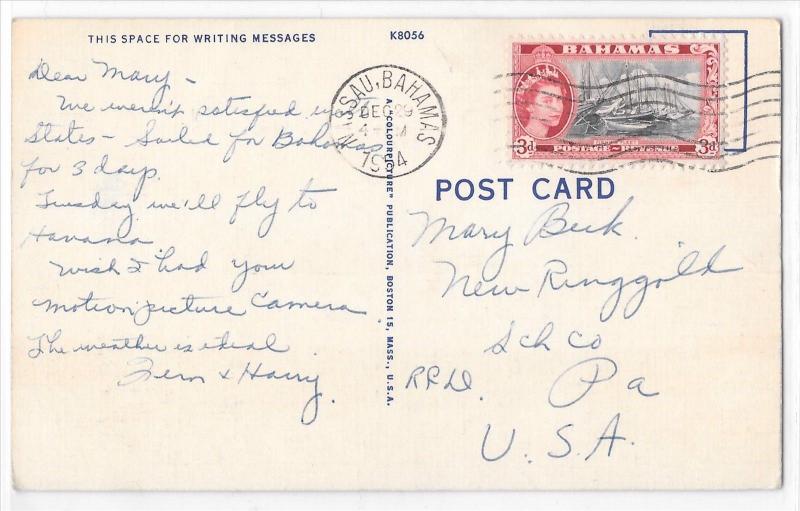 THIS SPACE FOR WRITING MESSAGES
K8056
Dear Mary -
We weren't satisfied in
States - Sailed for Bahamas
for 3 days.
Tuesday we'll fly to
Havana
Wish I had your
motion picture Camera
The weather is ideal
Fern & Harry.
A "COLOURPICTURE" PUBLICATION, BOSTON 15, MASS., U.S.A.
NASSAU, BAHAMAS
DEC 29
4 - PM
1954
BAHAMAS
3d
POSTAGE - REVENUE
3d
POST CARD
Mary Beck.
New Ringgold
Sch Co
R.R.D. Pa
U.S.A.